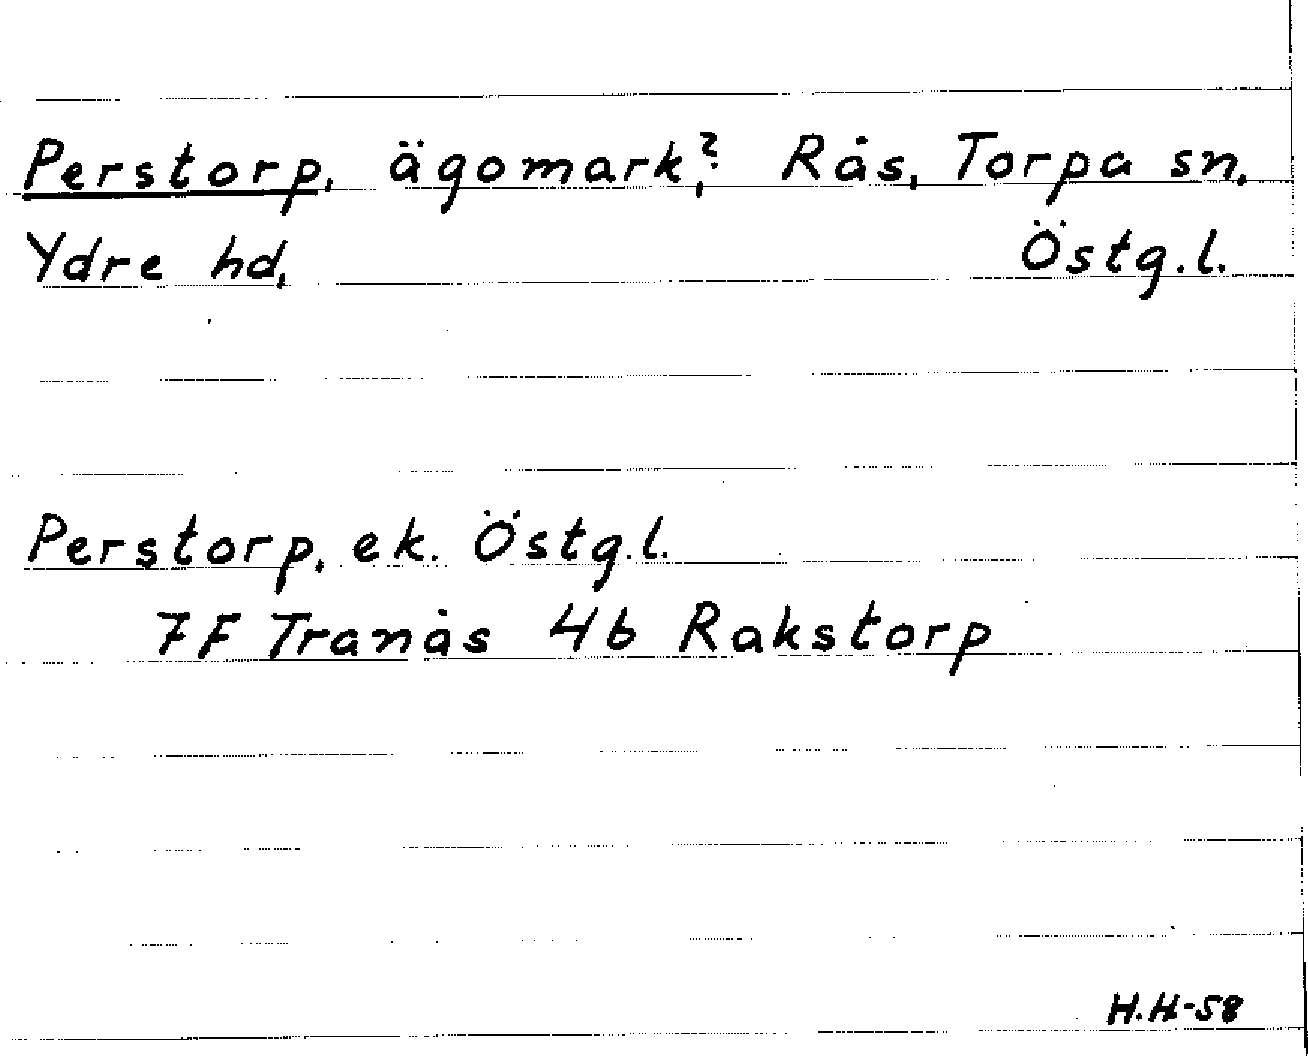 Perstorp, ägomark?, Rås, Torpa sn,
Ydre hd, Östg.l.
Perstorp, ek. Östg.l.
7F Tranås 4b Rakstorp
H.H-58